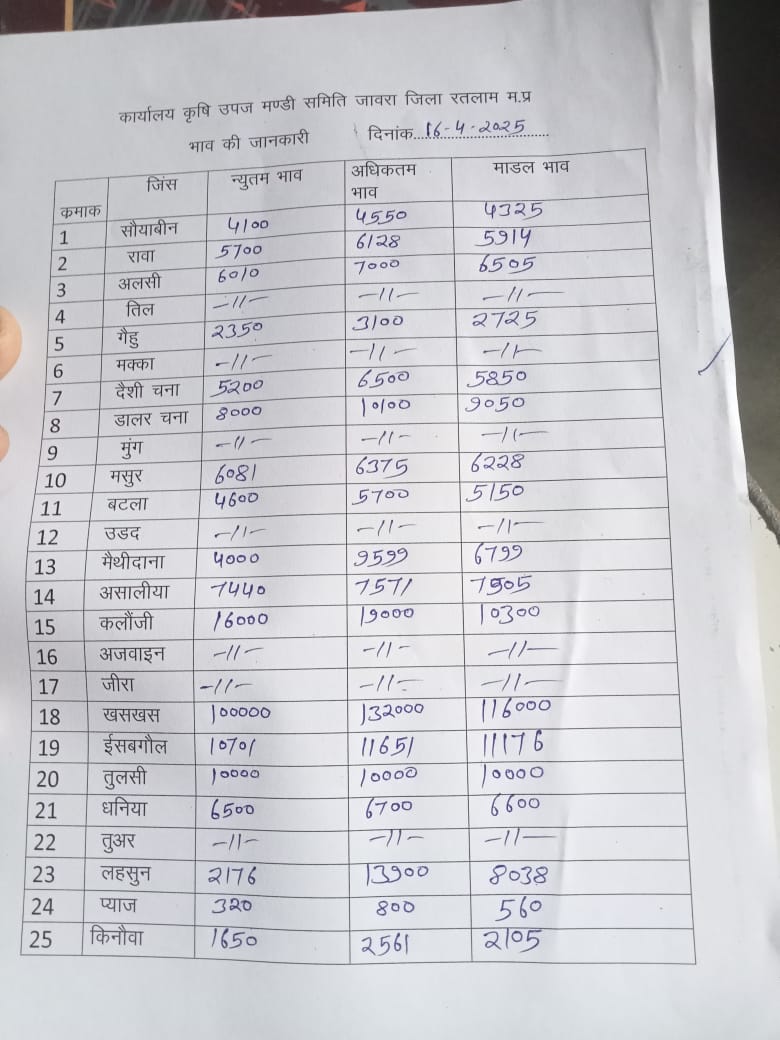 कार्यालय कृषि उपज मण्डी समिति जावरा जिला रतलाम म.प्र
भाव की जानकारी दिनांक...16-4-2025
कमाक जिंस न्युतम भाव अधिकतम भाव माडल भाव
1 सौयाबीन 4100 4550 4325
2 रावा 5700 6128 5914
3 अलसी 6010 7000 6505
4 तिल -11- -11- -11-
5 गैहु 2350 3100 2725
6 मक्का -11- -11- -11-
7 दैशी चना 5200 6500 5850
8 डालर चना 8000 10100 9050
9 मुंग -11- -11- -11-
10 मसुर 6081 6375 6228
11 बटला 4600 5700 5150
12 उडद -11- -11- -11-
13 मैथीदाना 4000 9599 6799
14 असालीया 7440 7571 7505
15 कलौंजी 16000 19000 10300
16 अजवाइन -11- -11- -11-
17 जीरा -11- -11- -11-
18 खसखस 100000 132000 116000
19 ईसबगौल 10701 11651 11176
20 तुलसी 10000 10000 10000
21 धनिया 6500 6700 6600
22 तुअर -11- -11- -11-
23 लहसुन 2176 13900 8038
24 प्याज 320 800 560
25 किनौवा 1650 2561 2105